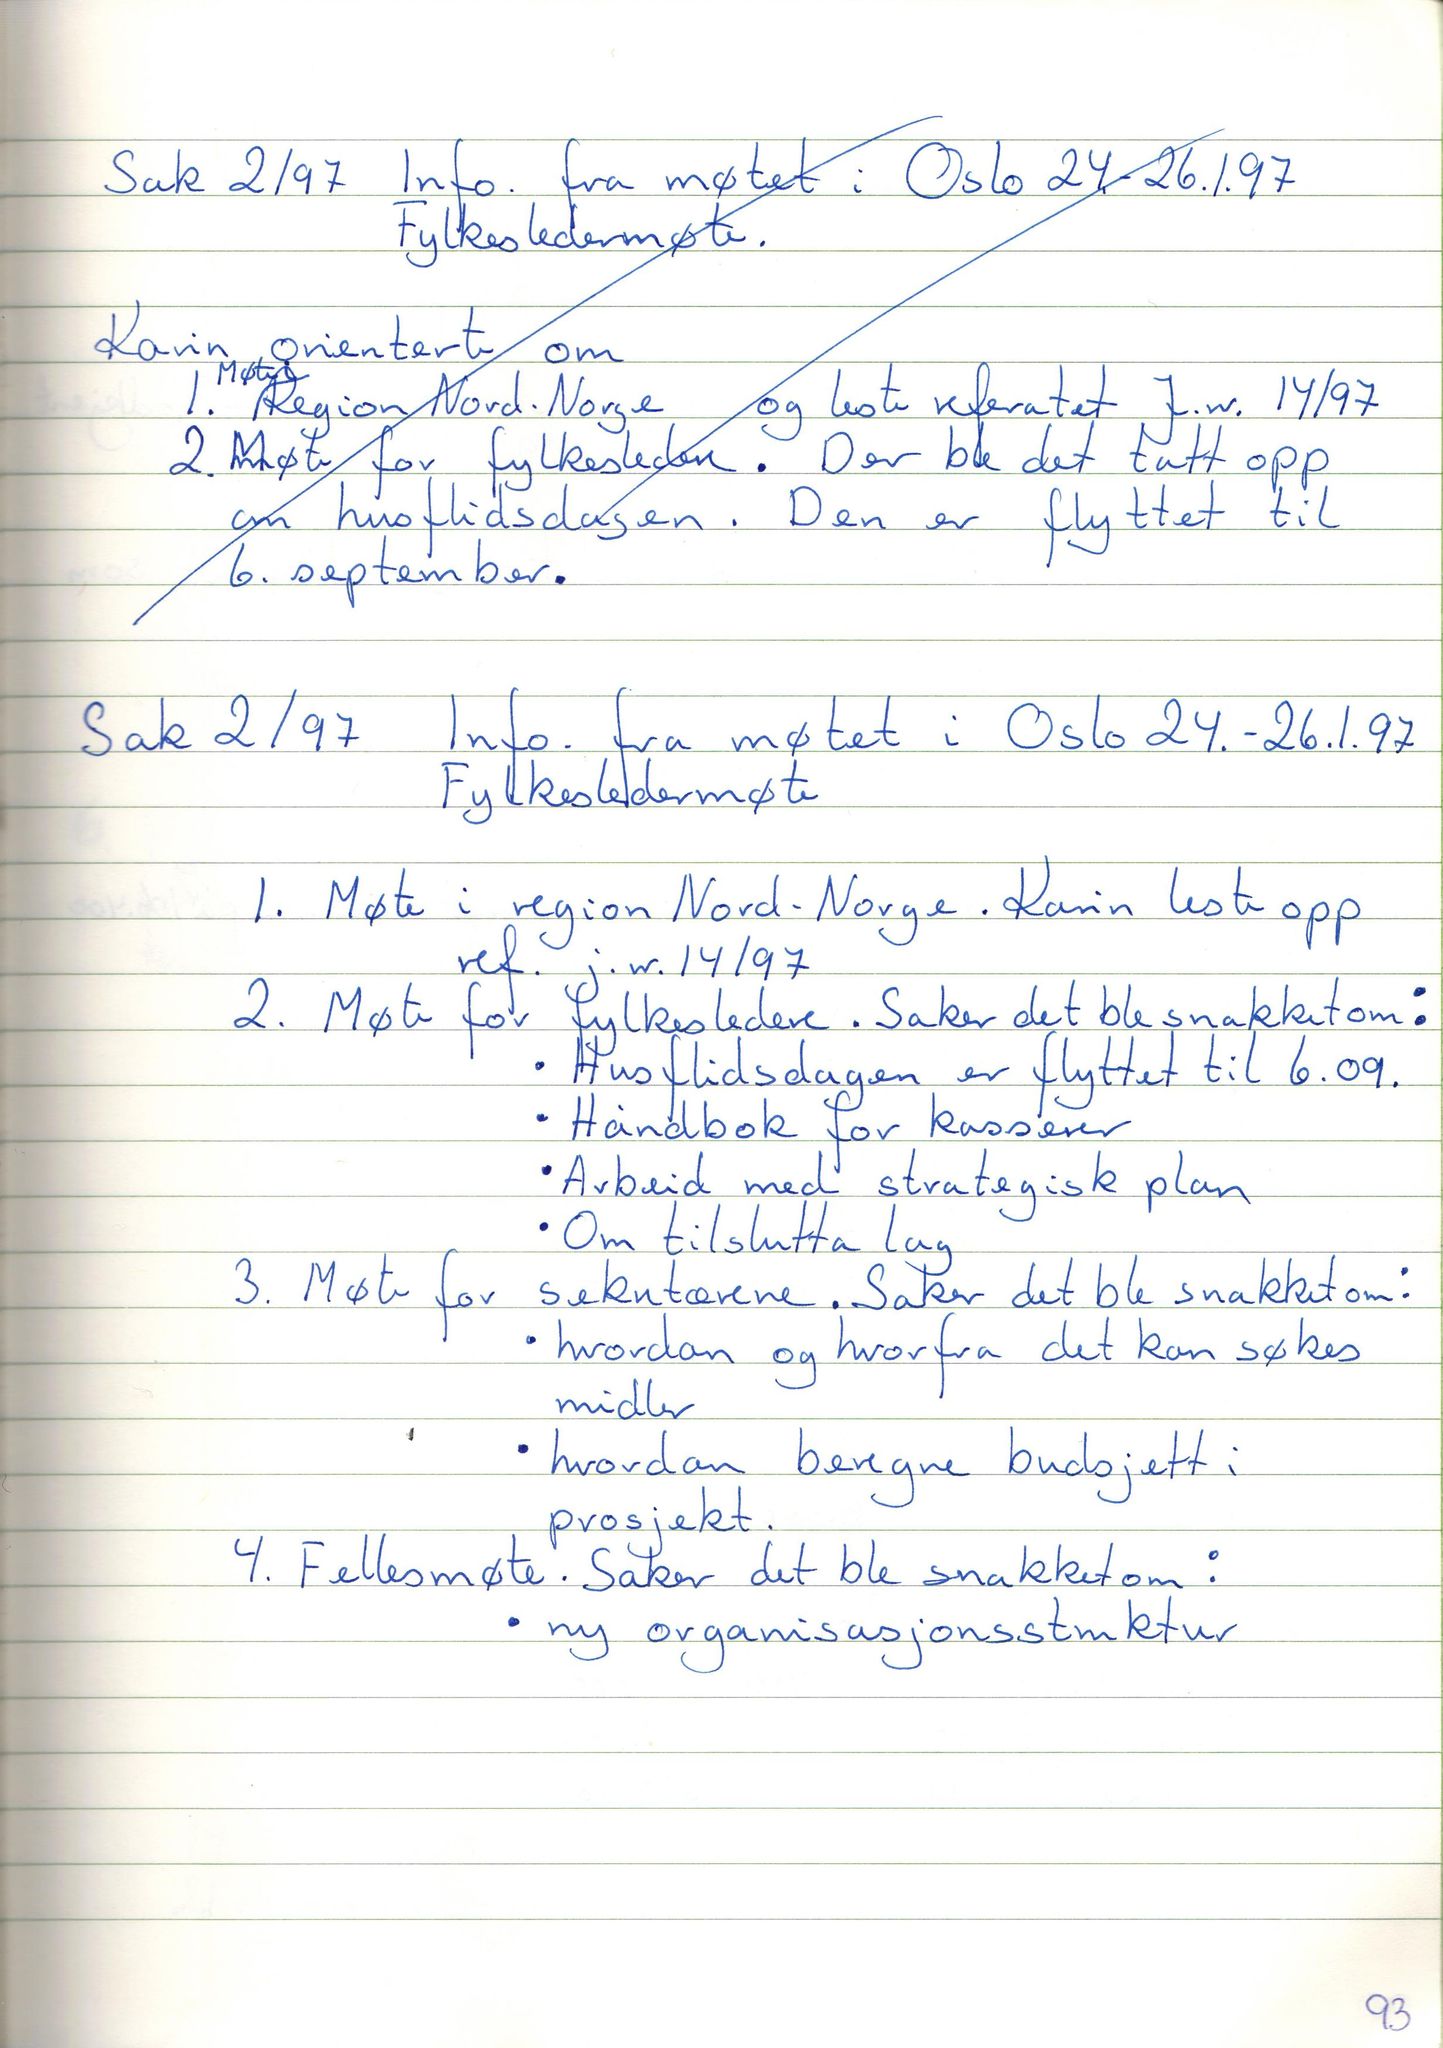 Sak 2/97 Info. fra møtet i Oslo 24.-26.1.97
Fylkesledermøte.
Karin orienterte om
1. Møte Region Nord-Norge og leste referatet J.nr. 14/97
2. Møte for fylkesledere. Der ble det tatt opp
om husflidsdagen. Den er flyttet til
6. september.
Sak 2/97 Info. fra møtet i Oslo 24.-26.1.97
Fylkesledermøte
1. Møte i region Nord-Norge. Karin leste opp
ref. j.nr. 14/97
2. Møte for fylkesledere. Saker det ble snakket om:
• Husflidsdagen er flyttet til 6.09.
• Håndbok for kasserer
• Arbeid med strategisk plan
• Om tilslutta lag
3. Møte for sekretærene. Saker det ble snakket om:
• hvordan og hvorfra det kan søkes
midler
• hvordan beregne budsjett i
prosjekt.
4. Fellesmøte. Saker det ble snakket om:
• ny organisasjonsstruktur
93